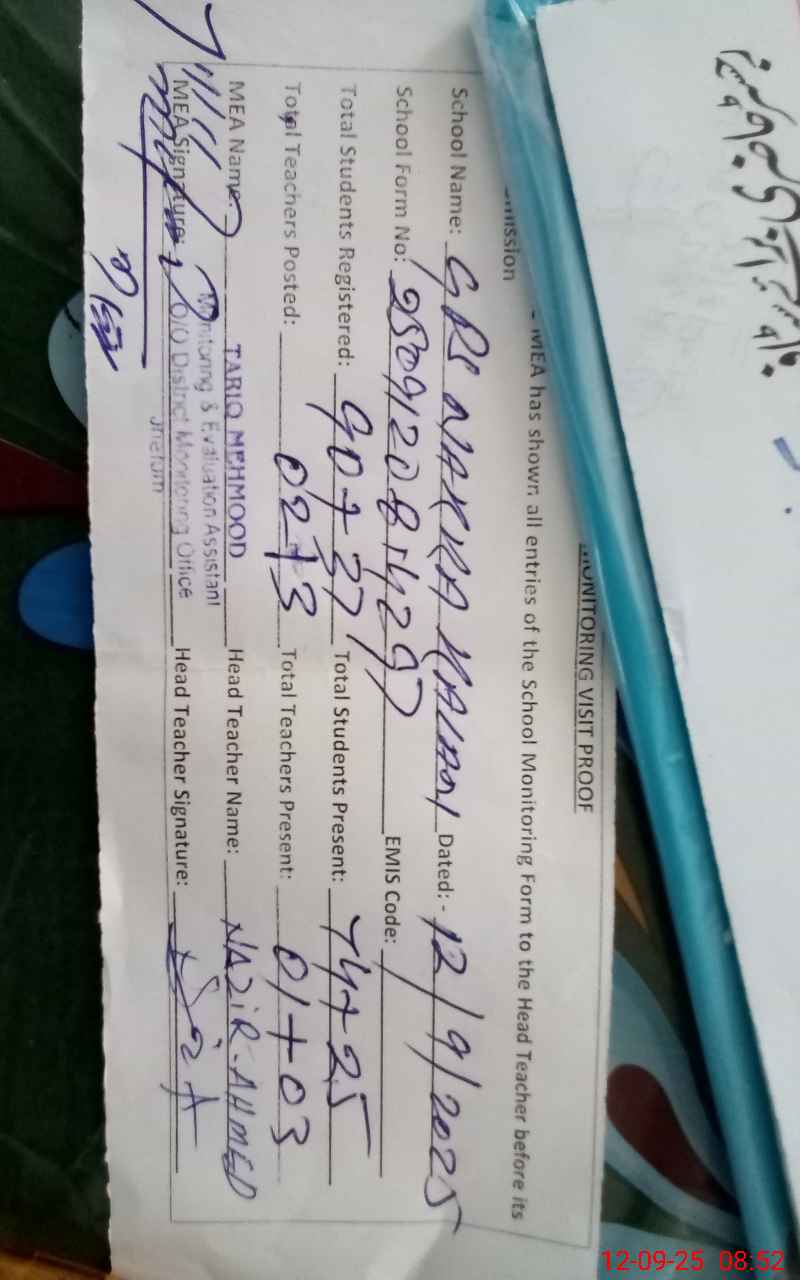 MONITORING VISIT PROOF
MEA has shown all entries of the School Monitoring Form to the Head Teacher before its
mission
School Name: GPS NAKKA KALAN Dated:- 12/9/2025
School Form No: EMIS Code:
Total Students Registered: 90+27 Total Students Present: 74+25
Total Teachers Posted: 02+3 Total Teachers Present: 01+03
MEA Name: TARIQ MEHMOOD Head Teacher Name: NAZIR-AHMED
Monitoring & Evaluation Assistant
MEA Signature: O/O District Monitoring Office Head Teacher Signature:
Jhelum
12-09-25 08:52